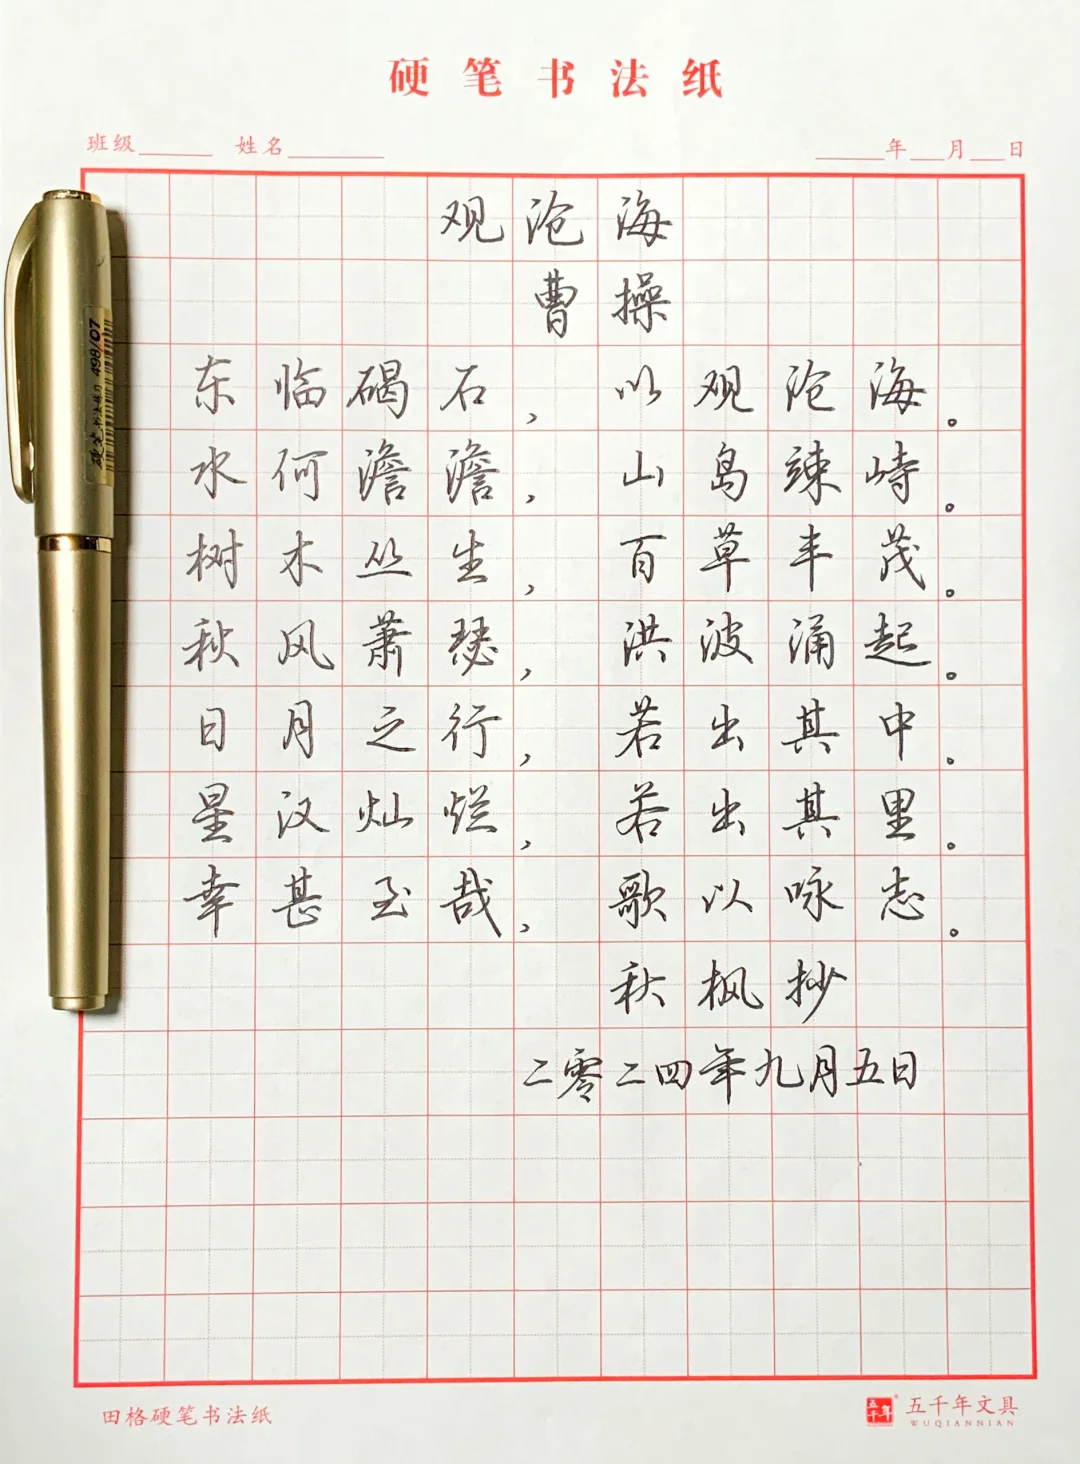 硬笔书法纸
班级______ 姓名________ ______年___月___日
观沧海
曹操
东临碣石，以观沧海。
水何澹澹，山岛竦峙。
树木丛生，百草丰茂。
秋风萧瑟，洪波涌起。
日月之行，若出其中。
星汉灿烂，若出其里。
幸甚至哉，歌以咏志。
秋枫抄
二零二四年九月五日
硬笔书法练习 498/07
田格硬笔书法纸
五千年
五千年文具
WUQIANNIAN